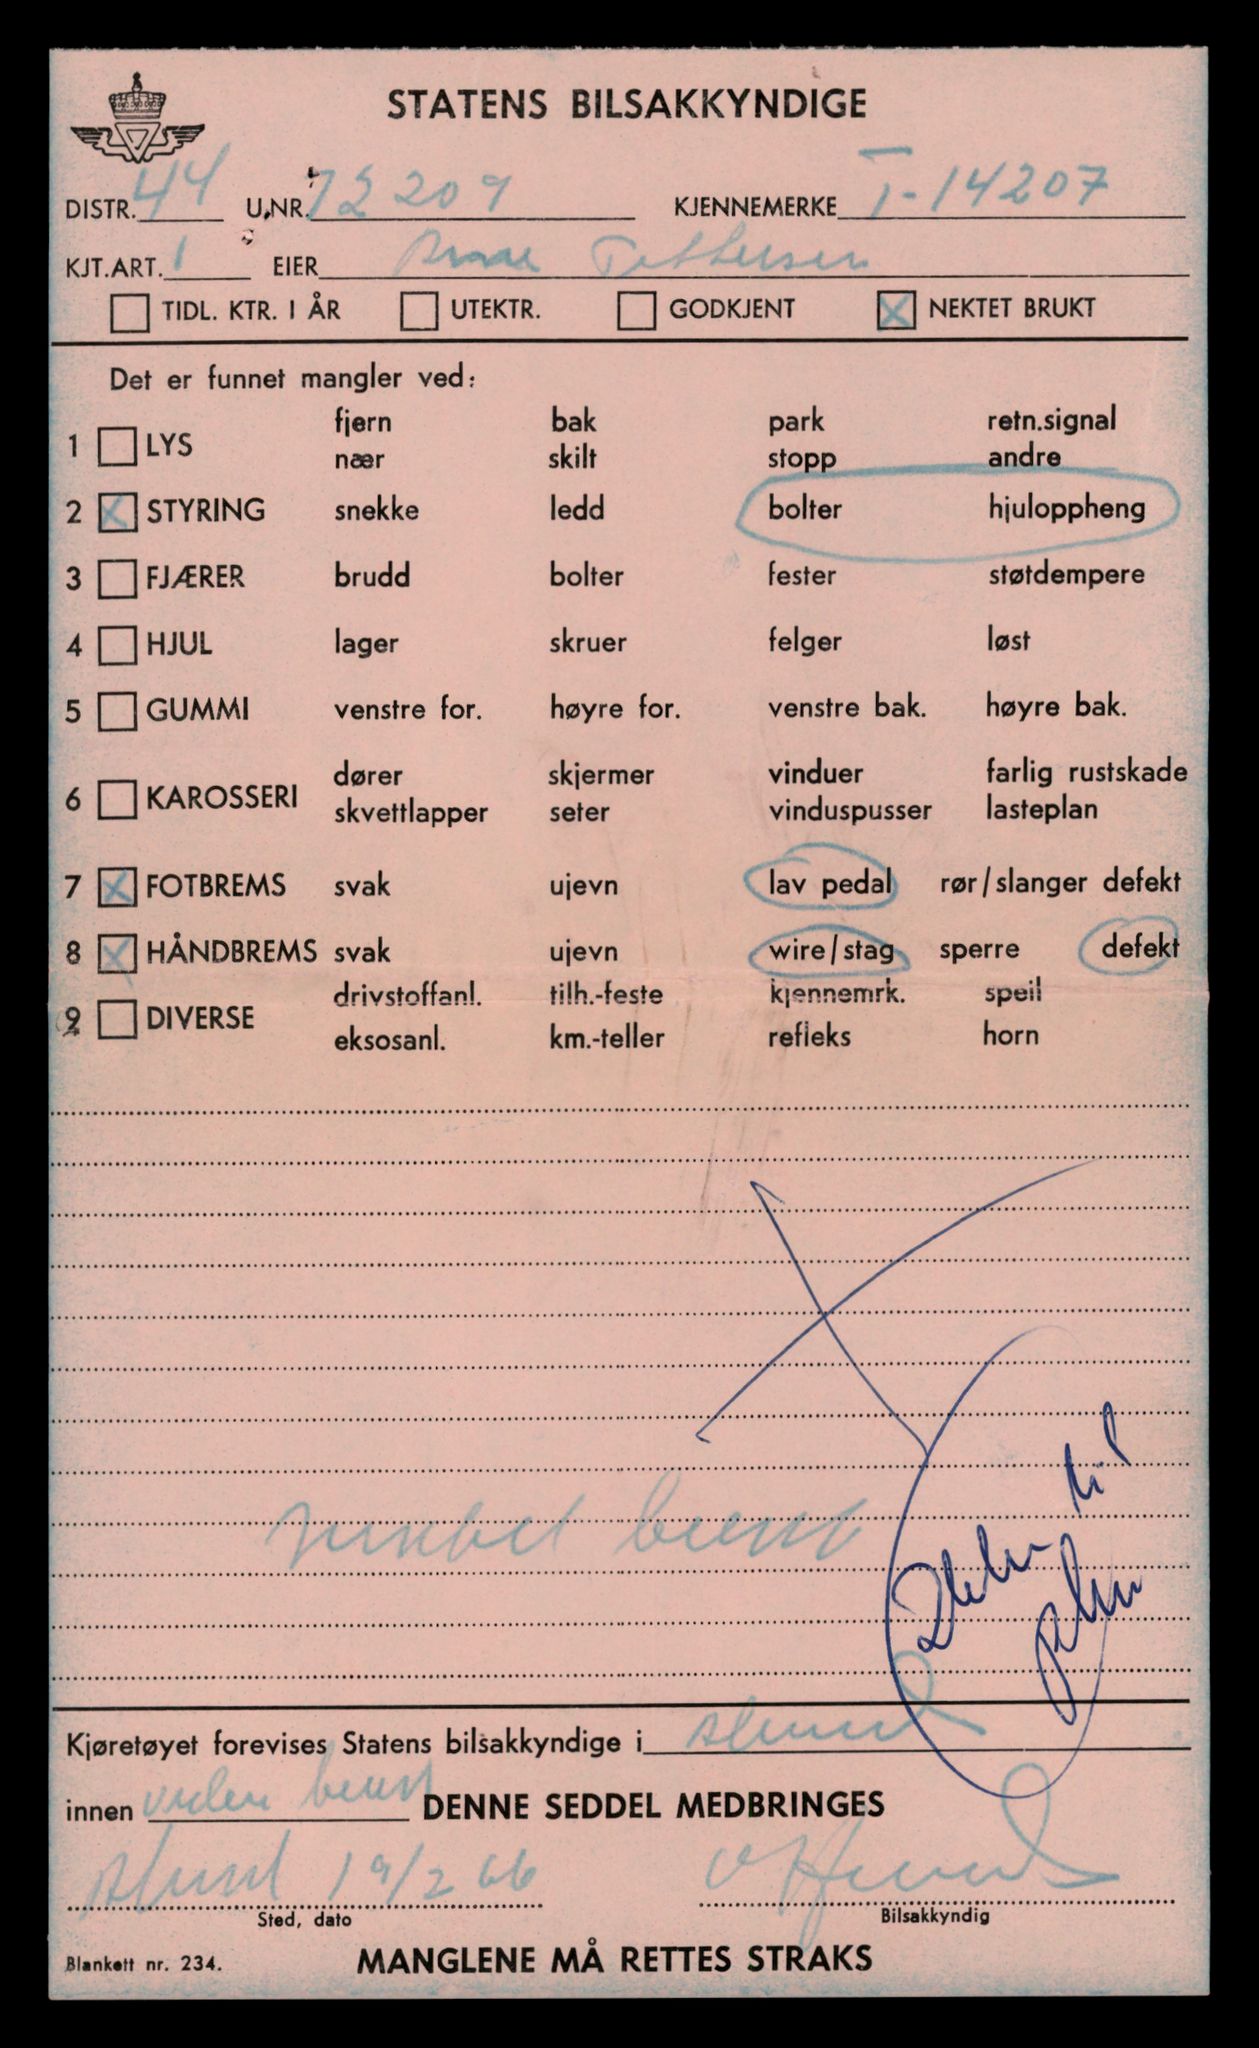 STATENS BILSAKKYNDIGE
DISTR. 44 U.NR. KJENNEMERKE T-14207
KJT.ART. 1 EIER
TIDL. KTR. I ÅR UTEKTR. GODKJENT X NEKTET BRUKT
Det er funnet mangler ved:
fjern bak park retn.signal
1 LYS
nær skilt stopp andre
2 X STYRING snekke ledd bolter hjuloppheng
3 FJÆRER brudd bolter fester støtdempere
4 HJUL lager skruer felger løst
5 GUMMI venstre for. høyre for. venstre bak. høyre bak.
dører skjermer vinduer farlig rustskade
6 KAROSSERI
skvettlapper seter vinduspusser lasteplan
7 X FOTBREMS svak ujevn lav pedal rør/slanger defekt
8 X HÅNDBREMS svak ujevn wire/stag sperre defekt
drivstoffanl. tilh.-feste kjennemrk. speil
9 DIVERSE
eksosanl. km.-teller refleks horn
nektet brukt
Kjøretøyet forevises Statens bilsakkyndige i
innen DENNE SEDDEL MEDBRINGES
19/2 66
Sted, dato Bilsakkyndig
Blankett nr. 234. MANGLENE MÅ RETTES STRAKS